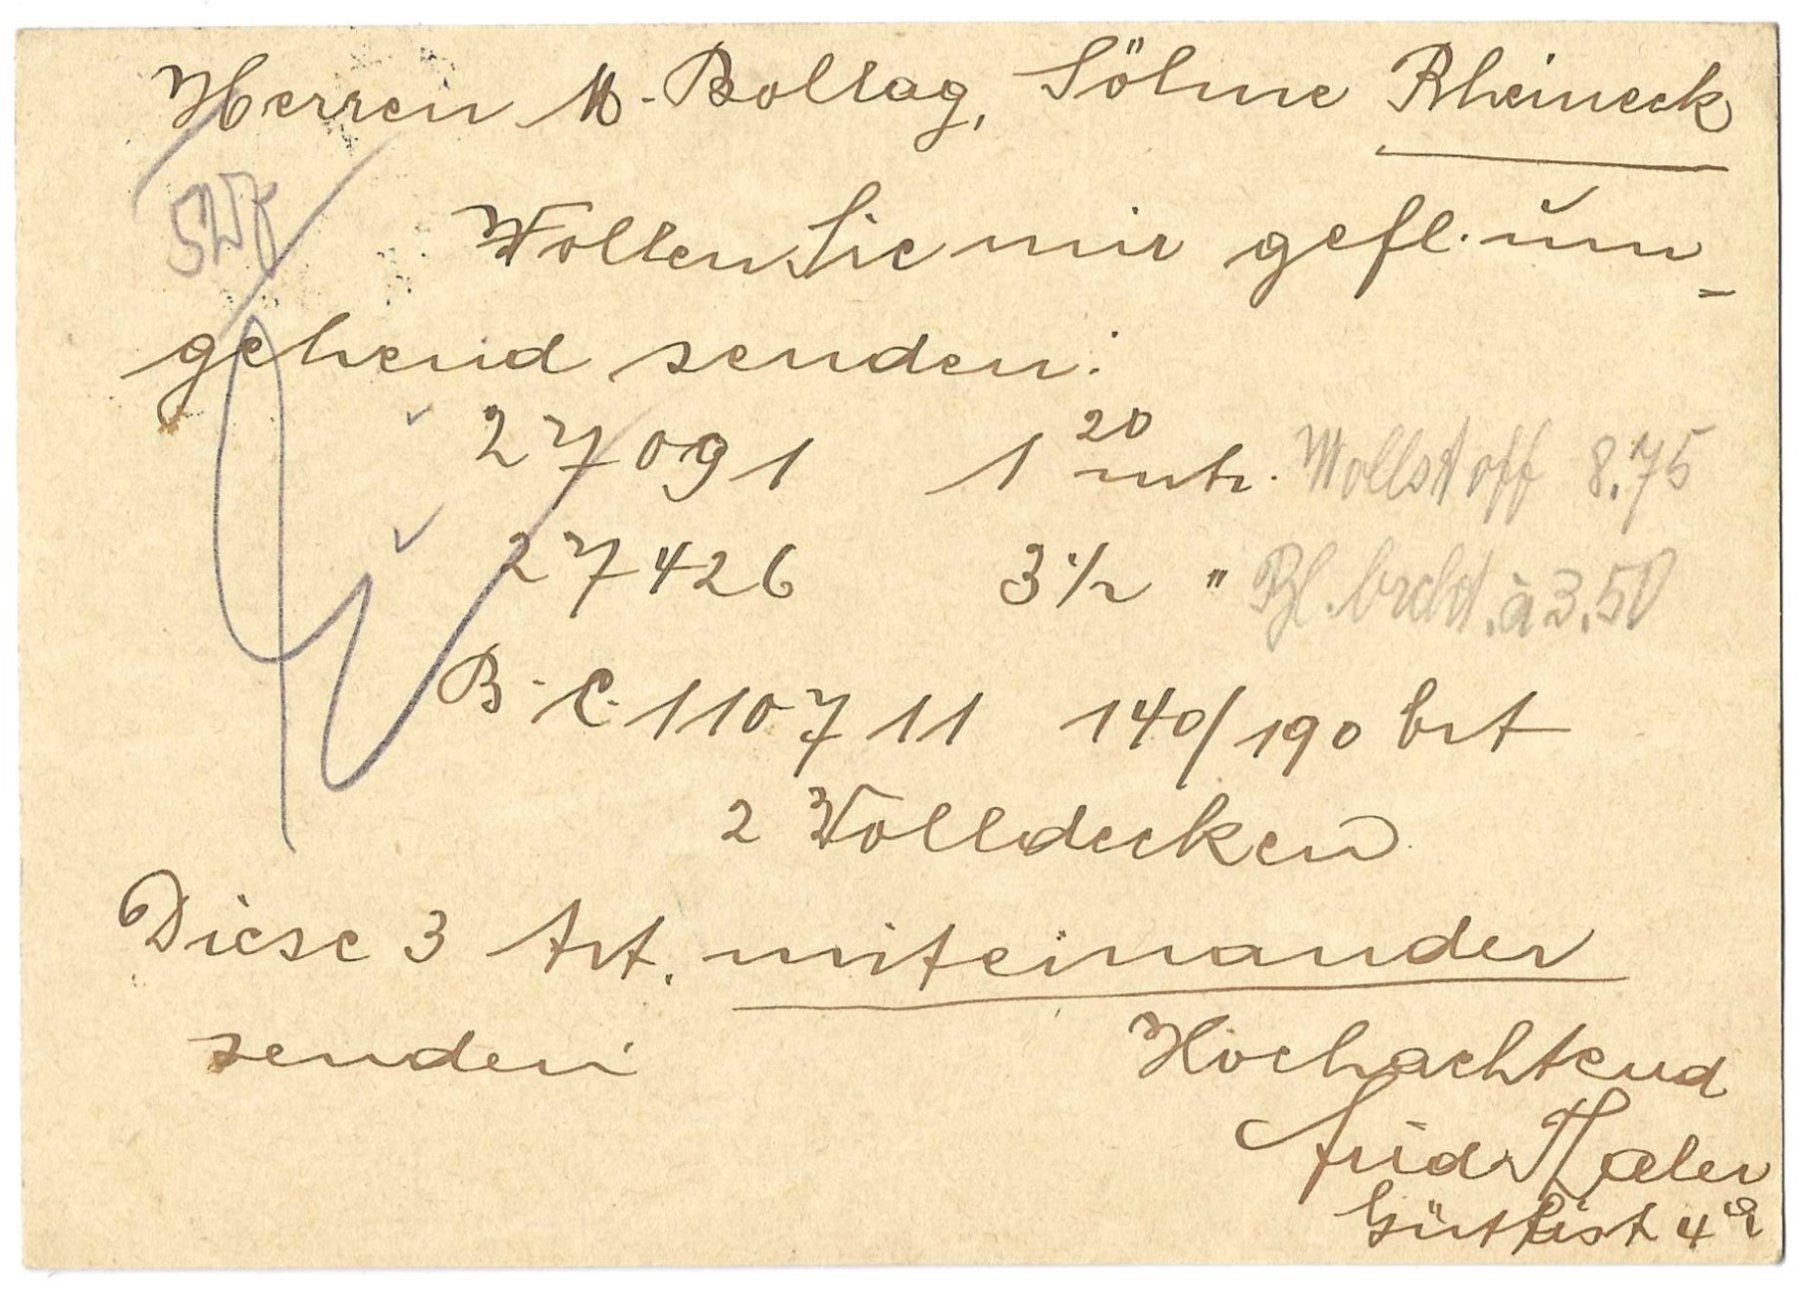 Herren M. Bollag, Söhne Rheineck
Wollen Sie mir gefl. um-
gehend senden:
27091 1 20 mtr. Wollstoff 8.75
27426 3 1/2 " à 3.50
B. C. 110711 140/190 brt
2 Wolldecken
Diese 3 Art. miteinander
senden
Hochachtend
Frid.